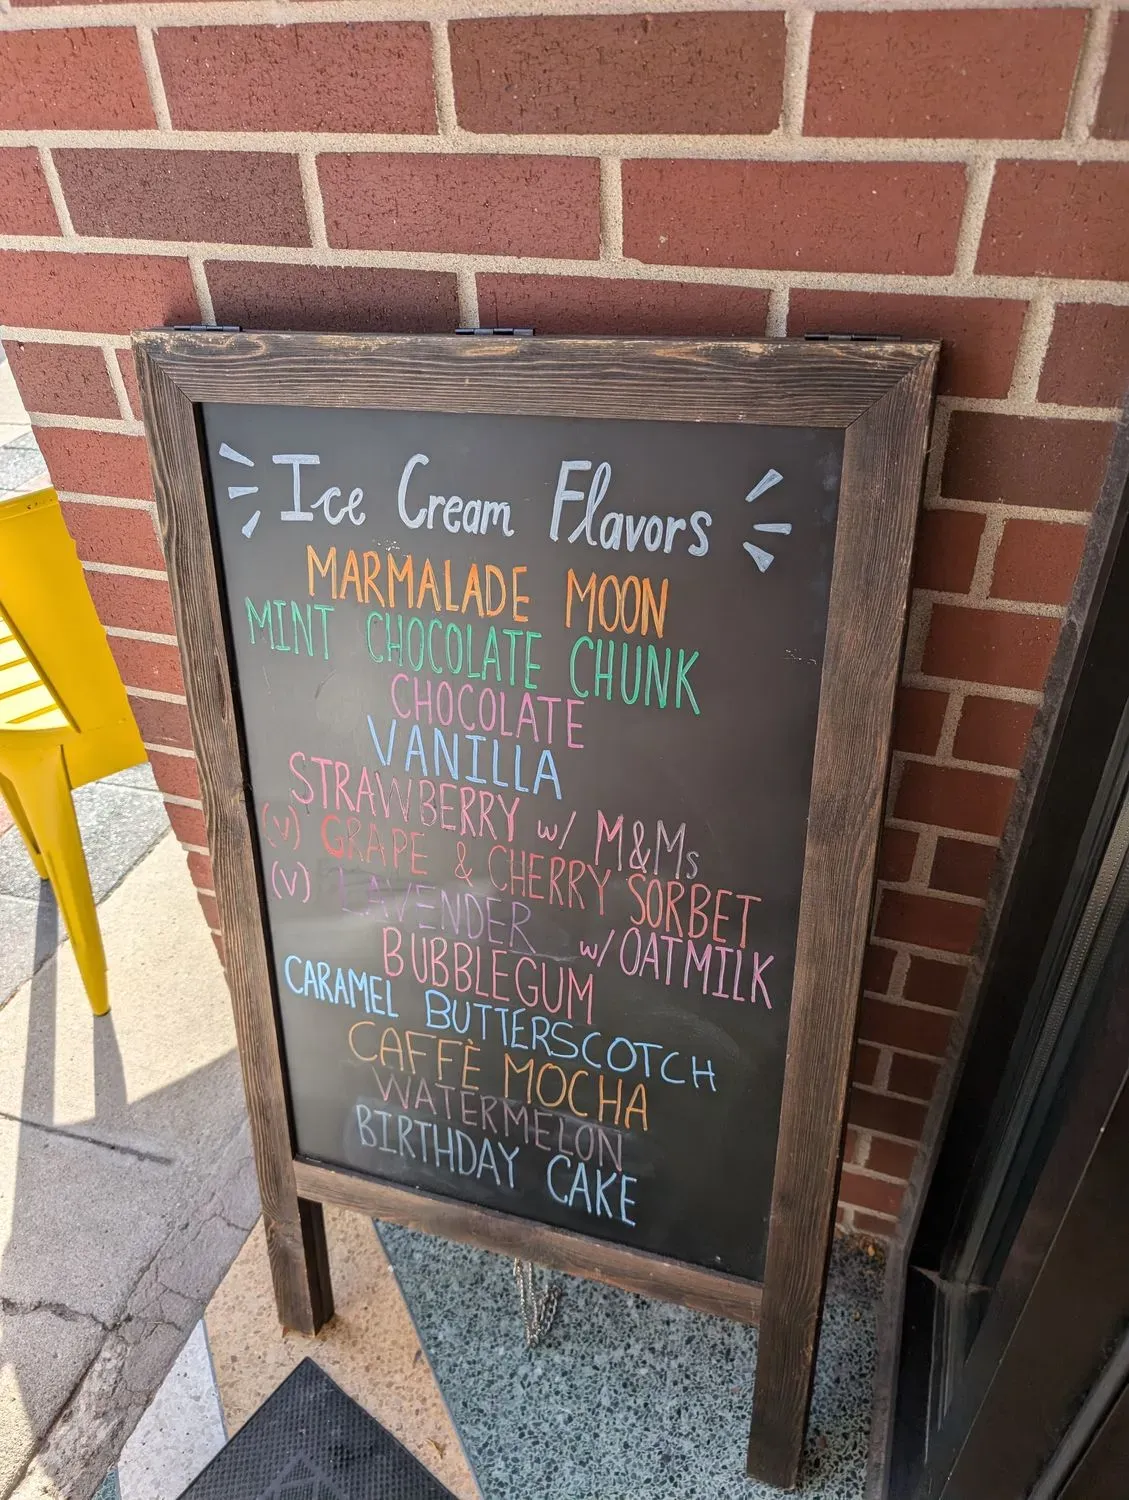 Ice Cream Flavors
MARMALADE MOON
MINT CHOCOLATE CHUNK
CHOCOLATE
VANILLA
STRAWBERRY w/ M&Ms
(v) GRAPE & CHERRY SORBET
(v) LAVENDER w/ OATMILK
BUBBLEGUM
CARAMEL BUTTERSCOTCH
CAFFÈ MOCHA
WATERMELON
BIRTHDAY CAKE